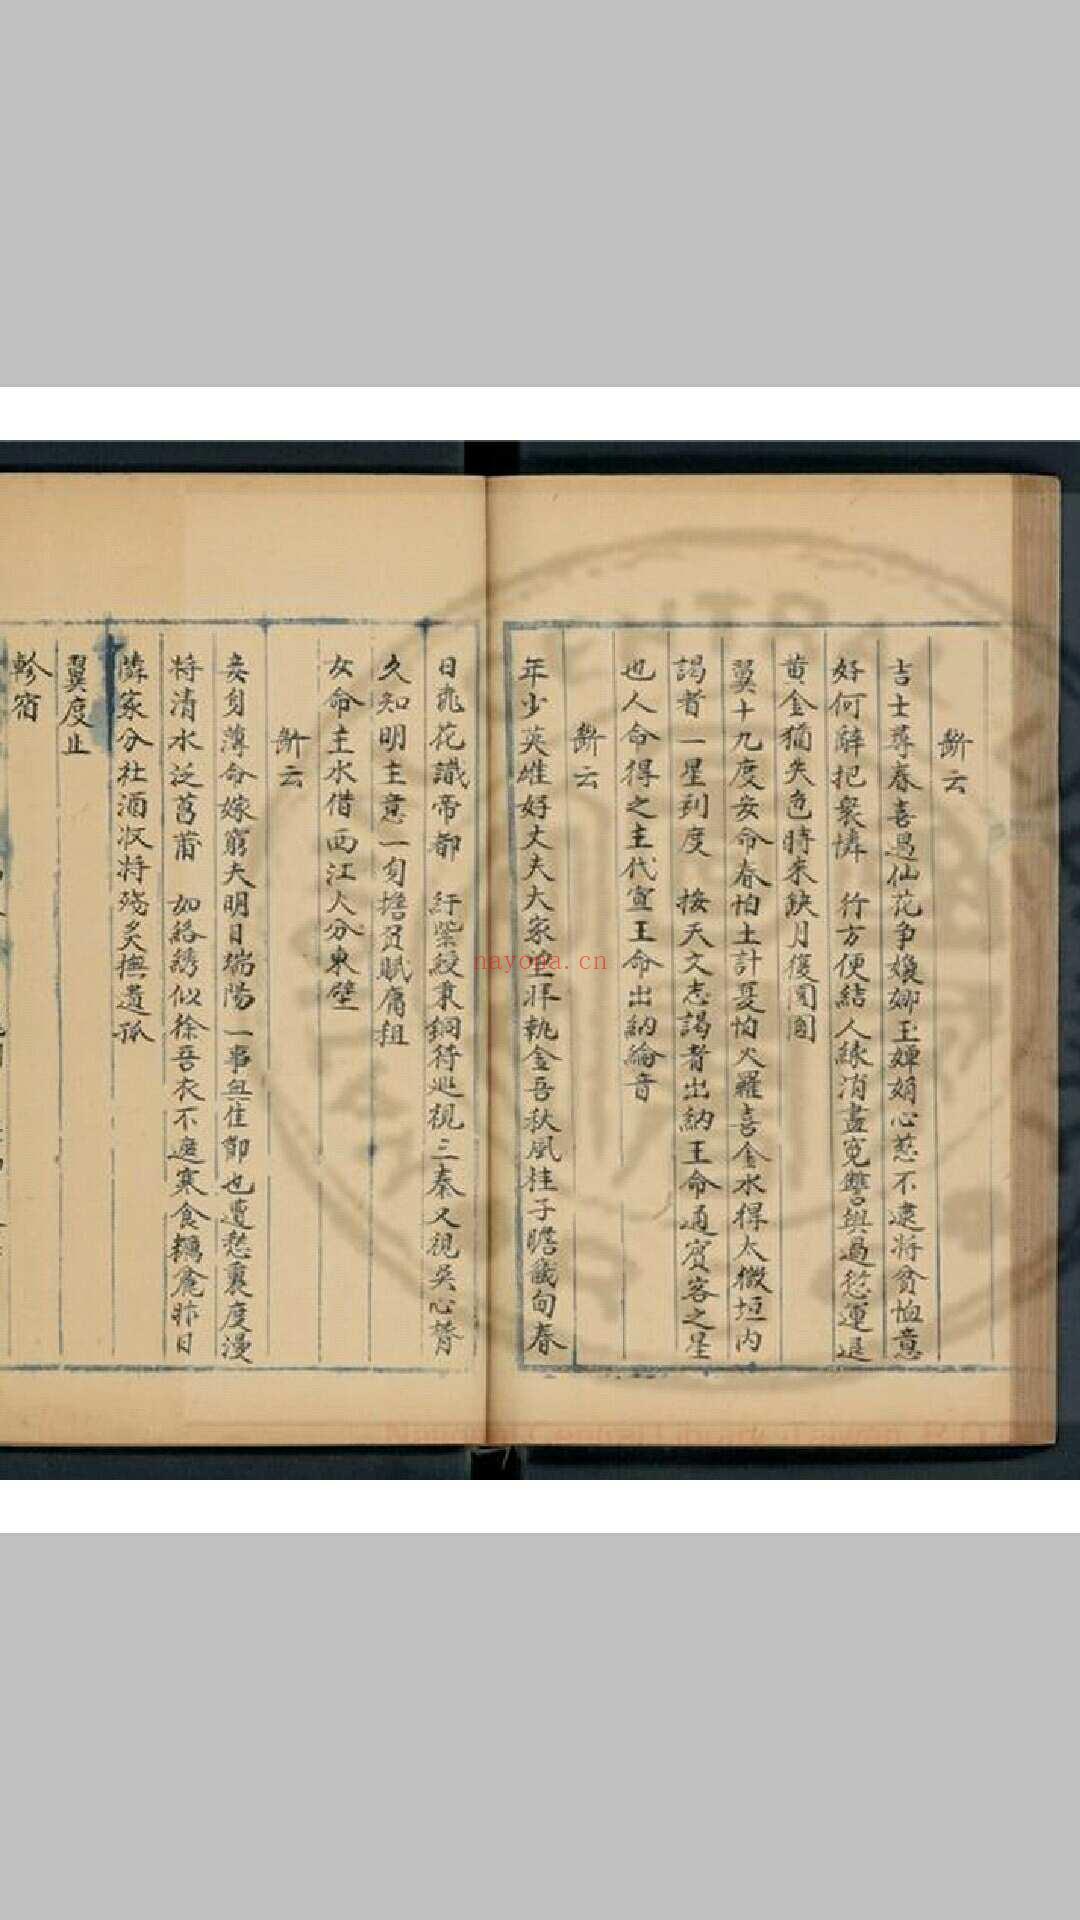 斷云
吉士尋春喜遇仙花争嬝娜玉嬋娟心慈不逮將貧恤意
好何辭把衆憐　行方便結人緣消盡寃讐與過愆運退
黄金猶失色時來缺月復團圓
翼十九度安命春怕土計夏怕火羅喜金水得太微垣内
謁者一星到度　按天文志謁者出納王命通賓客之星
也人命得之主代宣王命出納綸音
斷云
年少英雄好丈夫大家 拜執金吾秋風桂子瞻 句春
日 花識帝都　紆紫綬秉銅符巡視三秦又視吳心膂
久知明主意一匀 員賦庸租
女命主水借西江人分東壁
斷云
妾身薄命嫁窮夫明日端陽一事無佳節也遭愁裏度漫
将清水泛菖蒲　如絡綉似徐吾衣不遮寒食 昨日
隣家分社酒収将殘炙撫遺孤
翼度止
軫宿
nayona.cn